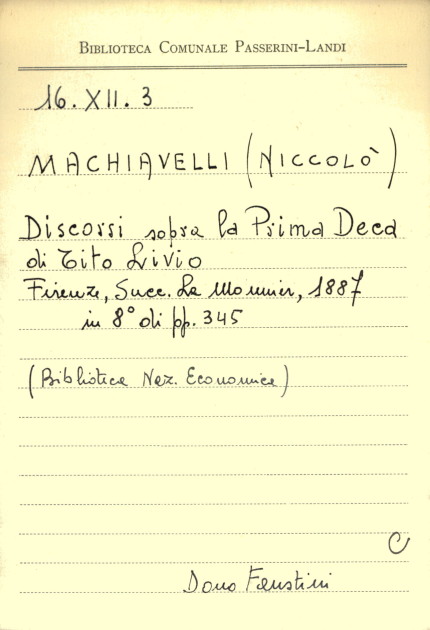 BIBLIOTECA COMUNALE PASSERINI-LANDI
16. XII. 3
MACHIAVELLI (NICCOLÒ)
Discorsi sopra la Prima Deca
di Tito Livio
Firenze, Succ. Le Monnier, 1887
in 8° di pp. 345
(Biblioteca Naz. Economica)
C
Dono Faustini